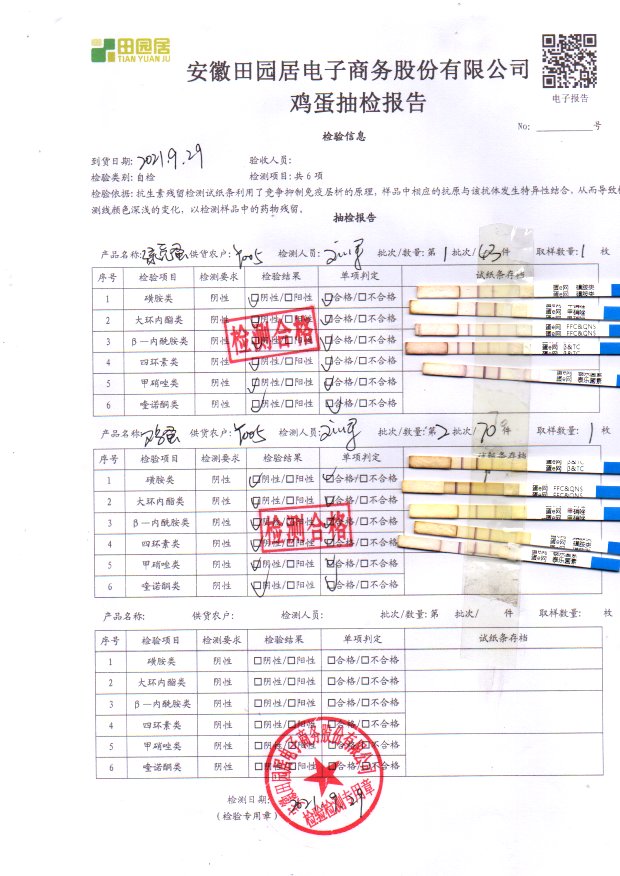 田园居
TIAN YUAN JU
安徽田园居电子商务股份有限公司
鸡蛋抽检报告
电子报告
No: 号
检验信息
到货日期: 2021.9.29 验收人员:
检验类别: 自检 检测项目: 共 6 项
检验依据: 抗生素残留检测试纸条利用了竞争抑制免疫层析的原理, 样品中相应的抗原与该抗体发生特异性结合, 从而导致检
测线颜色深浅的变化, 以检测样品中的药物残留。
抽检报告
产品名称: 绿壳蛋 供货农户: Y005 检测人员: 批次/数量: 第 1 批次/ 43 件 取样数量: 1 枚
序号 检验项目 检测要求 检验结果 单项判定 试纸条存档
1 磺胺类 阴性 ☑阴性/□阳性 ☑合格/□不合格
2 大环内酯类 阴性 ☑阴性/□阳性 ☑合格/□不合格
3 β—内酰胺类 阴性 ☑阴性/□阳性 ☑合格/□不合格
4 四环素类 阴性 ☑阴性/□阳性 ☑合格/□不合格
5 甲硝唑类 阴性 ☑阴性/□阳性 ☑合格/□不合格
6 喹诺酮类 阴性 ☑阴性/□阳性 ☑合格/□不合格
检测合格
蛋e网 磺胺类
蛋e网 磺胺类
蛋e网 甲硝唑
蛋e网 甲硝唑
蛋e网 FFC&QNS
蛋e网 FFC&QNS
蛋e网 β&TC
蛋e网 β&TC
蛋e网 泰乐菌素
产品名称: 鸡蛋 供货农户: Y005 检测人员: 批次/数量: 第 2 批次/ 70 件 取样数量: 1 枚
序号 检验项目 检测要求 检验结果 单项判定 试纸条存档
1 磺胺类 阴性 ☑阴性/□阳性 ☑合格/□不合格
2 大环内酯类 阴性 ☑阴性/□阳性 ☑合格/□不合格
3 β—内酰胺类 阴性 ☑阴性/□阳性 ☑合格/□不合格
4 四环素类 阴性 ☑阴性/□阳性 ☑合格/□不合格
5 甲硝唑类 阴性 ☑阴性/□阳性 ☑合格/□不合格
6 喹诺酮类 阴性 ☑阴性/□阳性 ☑合格/□不合格
检测合格
蛋e网 β&TC
蛋e网 β&TC
蛋e网 FFC&QNS
蛋e网 FFC&QNS
蛋e网 甲硝唑
蛋e网 甲硝唑
蛋e网 磺胺类
蛋e网 磺胺类
蛋e网 泰乐菌素
产品名称: 供货农户: 检测人员: 批次/数量: 第 批次/ 件 取样数量: 枚
序号 检验项目 检测要求 检验结果 单项判定 试纸条存档
1 磺胺类 阴性 □阴性/□阳性 □合格/□不合格
2 大环内酯类 阴性 □阴性/□阳性 □合格/□不合格
3 β—内酰胺类 阴性 □阴性/□阳性 □合格/□不合格
4 四环素类 阴性 □阴性/□阳性 □合格/□不合格
5 甲硝唑类 阴性 □阴性/□阳性 □合格/□不合格
6 喹诺酮类 阴性 □阴性/□阳性 □合格/□不合格
检测日期: 2021.9.29
(检验专用章)
安徽田园居电子商务股份有限公司
检验检测专用章